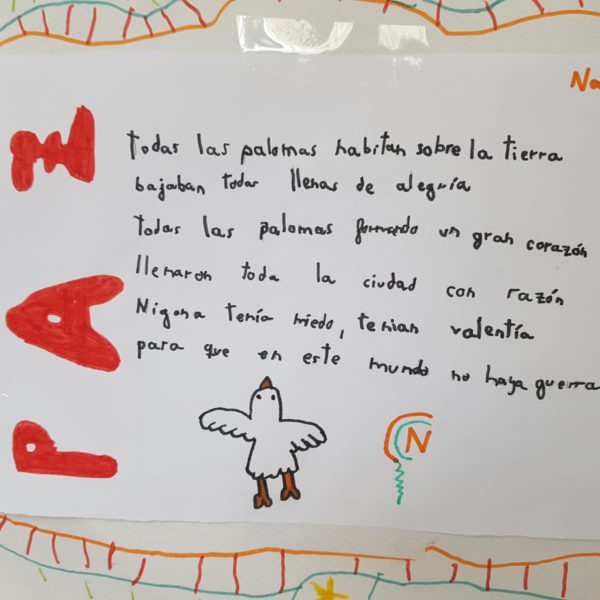 Na
PAZ
Todas las palomas habitan sobre la tierra
bajaban todas llenas de alegría
Todas las palomas formando un gran corazón
llenaron toda la ciudad con razón
Nigona tenía miedo, tenian valentía
para que en este mundo no haya guerra
N